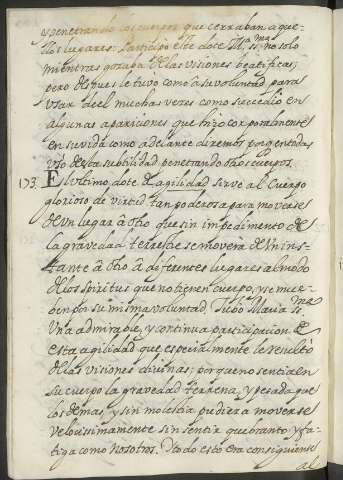 y penetrando los cuerpos que cerraban aque-
llos lugares. Participó este dote Mᵃ. SSᵐᵃ. no solo
mientras gozaba de las visiones beatificas;
pero despues le tuvo como â su voluntad para
vsar deel muchas vezes como sucedio en
algunas apariciones que hizo corporalmente
en su vida como adelante diremos por q̃ en todas
vsó de la subtilidad penetrando otros cuerpos.
173. El vltimo dote de agilidad sirve al Cuerpo
glorioso de virtud tan poderosa para moverse
de vn lugar â otro que sin impedimento de
la gravedad terrestre se moverâ de vn ins-
tante â otro â diferentes lugares al modo
de los spiritus que no tienen cuerpo, y se mue-
ven por su misma voluntad. Tubo Maria SSᵐᵃ
vna admirable, y continua participacion de
esta agilidad que especialmente le resultó
de las visiones divinas; porque no sentia en
su cuerpo la gravedad terrena, y pesada que
los demas, y sin molestia pudiera moverse
velocissimamente sin sentir quebranto, y fa-
tiga como nosotros. Y todo esto era consiguiente
al